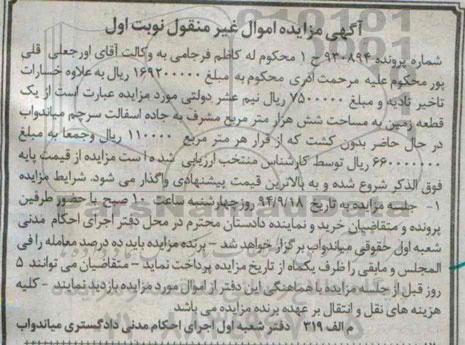 آگهی مزایده اموال غیر منقول نوبت اول
شماره پرونده ۹۳۰۸۹۴ ح ۱ محکوم له کاظم فرجامی به وکالت آقای اورجعلی قلی
پور محکوم علیه مرحمت آذری محکوم به مبلغ ۱۶۹۲۰۰۰۰۰ ریال به علاوه خسارات
تاخیر تادیه و مبلغ ۷۵۰۰۰۰۰ ریال نیم عشر دولتی مورد مزایده عبارت است از یک
قطعه زمین به مساحت شش هزار متر مربع مشرف به جاده اسفالت سرچم میاندواب
در حال حاضر بدون کشت که از قرار هر متر مربع ۱۱۰۰۰۰ ریال وجمعا به مبلغ
۶۶۰۰۰۰۰۰۰ ریال توسط کارشناس منتخب ارزیابی شده است مزایده از قیمت پایه
فوق الذکر شروع شده و به بالاترین قیمت پیشنهادی واگذار می شود. شرایط مزایده
۱- جلسه مزایده به تاریخ ۹۴/۹/۱۸ روز چهارشنبه ساعت ۱۰ صبح با حضور طرفین
پرونده و متقاضیان خرید و نماینده دادستان محترم در محل دفتر اجرای احکام مدنی
شعبه اول حقوقی میاندواب برگزار خواهد شد - برنده مزایده باید ده درصد معامله را فی
المجلس و مابقی را ظرف یکماه از تاریخ مزایده پرداخت نماید - متقاضیان می توانند ۵
روز قبل از جلسه مزایده با هماهنگی این دفتر از اموال مورد مزایده بازدید نمایند - کلیه
هزینه های نقل و انتقال بر عهده برنده مزایده می باشد
م الف ۳۱۹ دفتر شعبه اول اجرای احکام مدنی دادگستری میاندواب